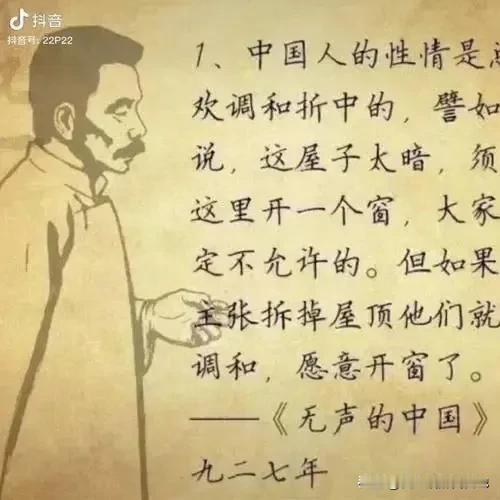 抖音
抖音号: 22P22
1、中国人的性情是总
欢调和折中的,譬如
说,这屋子太暗,须
这里开一个窗,大家
定不允许的。但如果
主张拆掉屋顶他们就
调和,愿意开窗了。
——《无声的中国》
九二七年